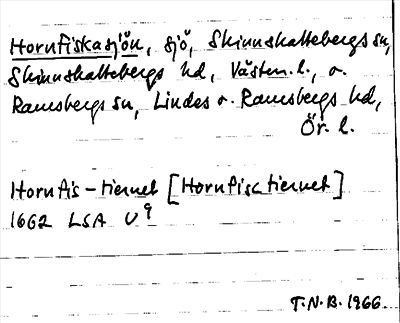 Hornfiskasjön, sjö, Skinnskattebergs sn,
Skinnskattebergs hd, Västm. l., o.
Ramsbergs sn, Lindes o. Ramsbergs hd,
Ör. l.
Hornfis-tiernet [Hornfisctiernet]
1662 LSA U⁹
T.N.B. 1966.